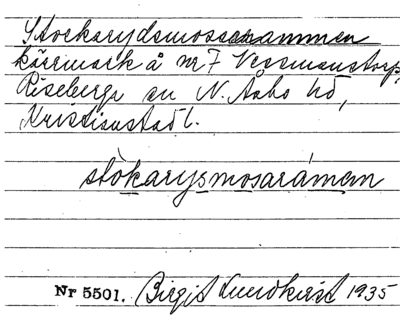 Stockarydsmosserammen
kärrmark å nr 7 Vessmanstorp,
Riseberga sn N. Åsbo hd,
Kristianstad l.
stòkarysmosarámen
Nr 5501. Birgit Lundkvist 1935